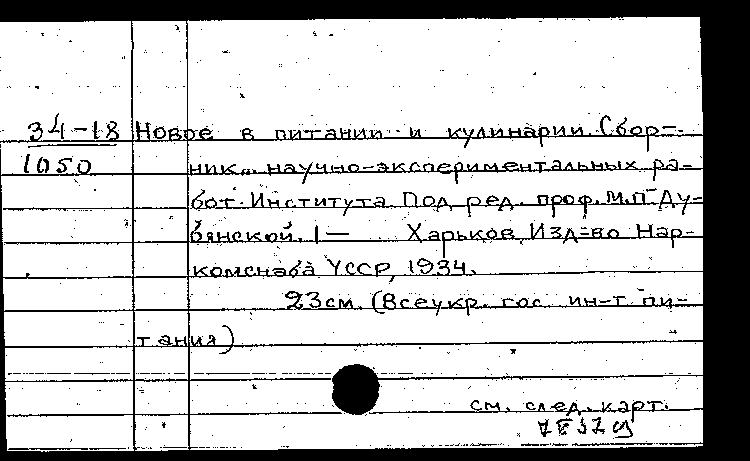 34-18 Новое в питании и кулинарии. Сбор-
1050 ник научно-экспериментальных ра-
бот Института Под ред. проф. М.П. Ду-
бянской. 1— Харьков, Изд-во Нар-
комснаба УССР, 1934.
23см. (Всеукр. гос. ин-т пи-
тания)
см. след. карт.